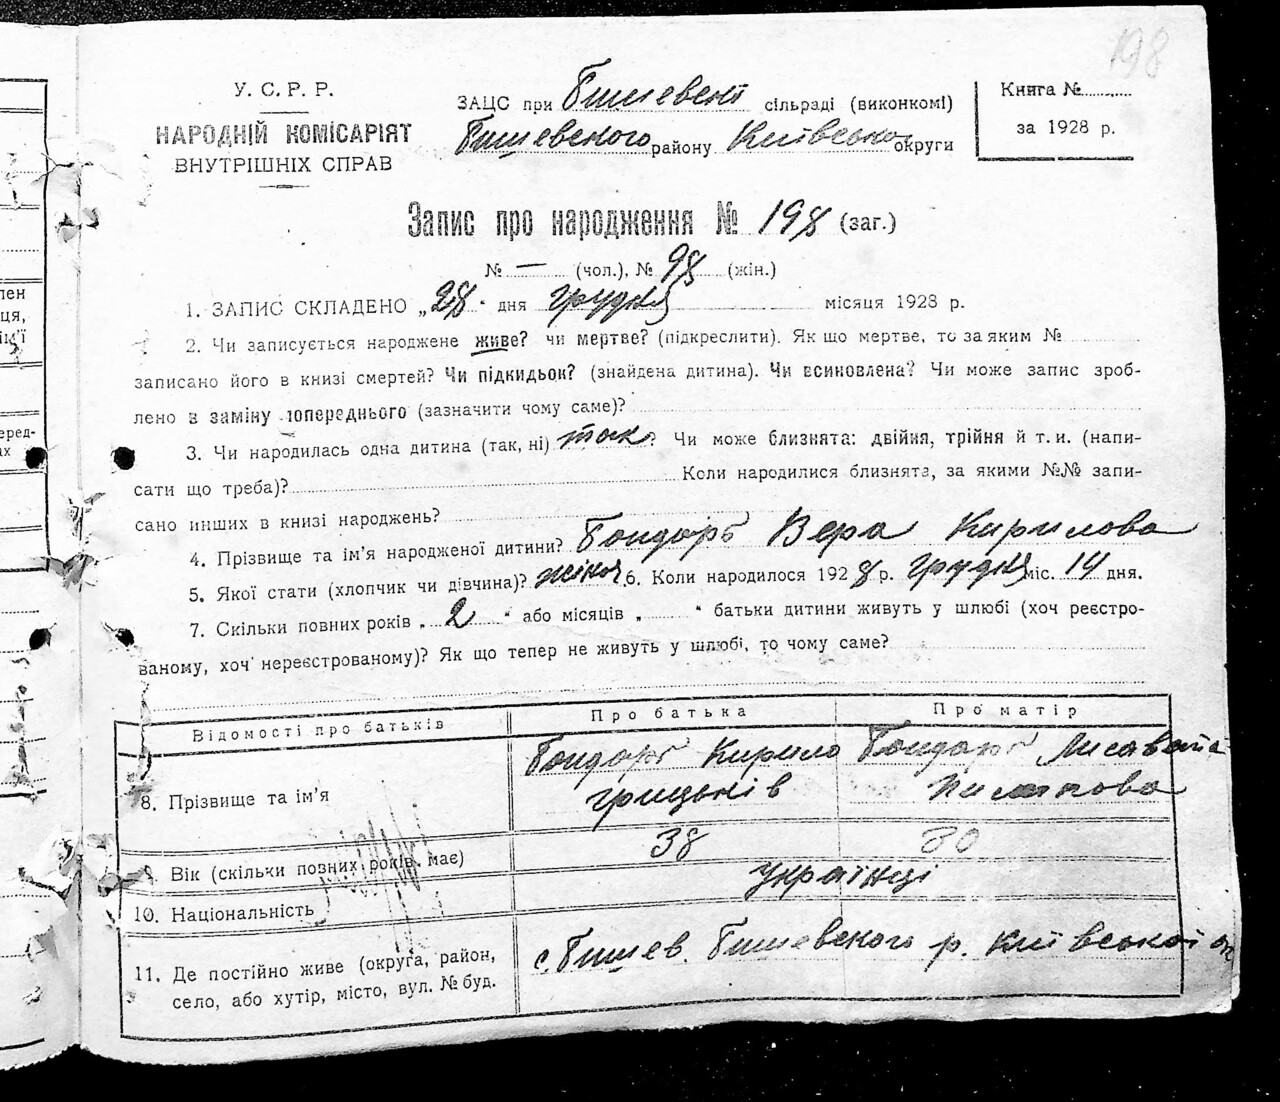 198
У. С. Р. Р.
НАРОДНІЙ КОМІСАРІЯТ
ВНУТРІШНІХ СПРАВ
ЗАЦС при Бишевскі сільраді (виконкомі)
Бишевского району Київсько округи
Книга №
за 1928 р.
Запис про народження № 198 (заг.)
№ — (чол.), № 98 (жін.)
1. ЗАПИС СКЛАДЕНО „28" дня грудня місяця 1928 р.
2. Чи записується народжене живе? чи мертве? (підкреслити). Як що мертве, то за яким №
записано його в книзі смертей? Чи підкидьок? (знайдена дитина). Чи всиновлена? Чи може запис зроб-
лено в заміну попереднього (зазначити чому саме)?
3. Чи народилась одна дитина (так, ні) так? Чи може близнята: двійня, трійня й т. и. (напи-
сати що треба)? Коли народилися близнята, за якими №№ запи-
сано инших в книзі народжень?
4. Прізвище та ім'я народженої дитини? Бондарь Вера Кирилова
5. Якої стати (хлопчик чи дівчина)? жіноч 6. Коли народилося 1928 р. грудня міс. 14 дня.
7. Скільки повних років „ 2 " або місяців „ " батьки дитини живуть у шлюбі (хоч реєстро-
ваному, хоч нереєстрованому)? Як що тепер не живуть у шлюбі, то чому саме?
Відомості про батьків Про батька Про матір
8. Прізвище та ім'я Бондарь Кирило Грицьків Бондарь Лисавета
9. Вік (скільки повних років має) 38 30
10. Національність Українці
11. Де постійно живе (округа, район,
село, або хутір, місто, вул. № буд.
с. Бишев Бишевского р. Київської ок
лен
ця,
ім'ї
еред-
ах